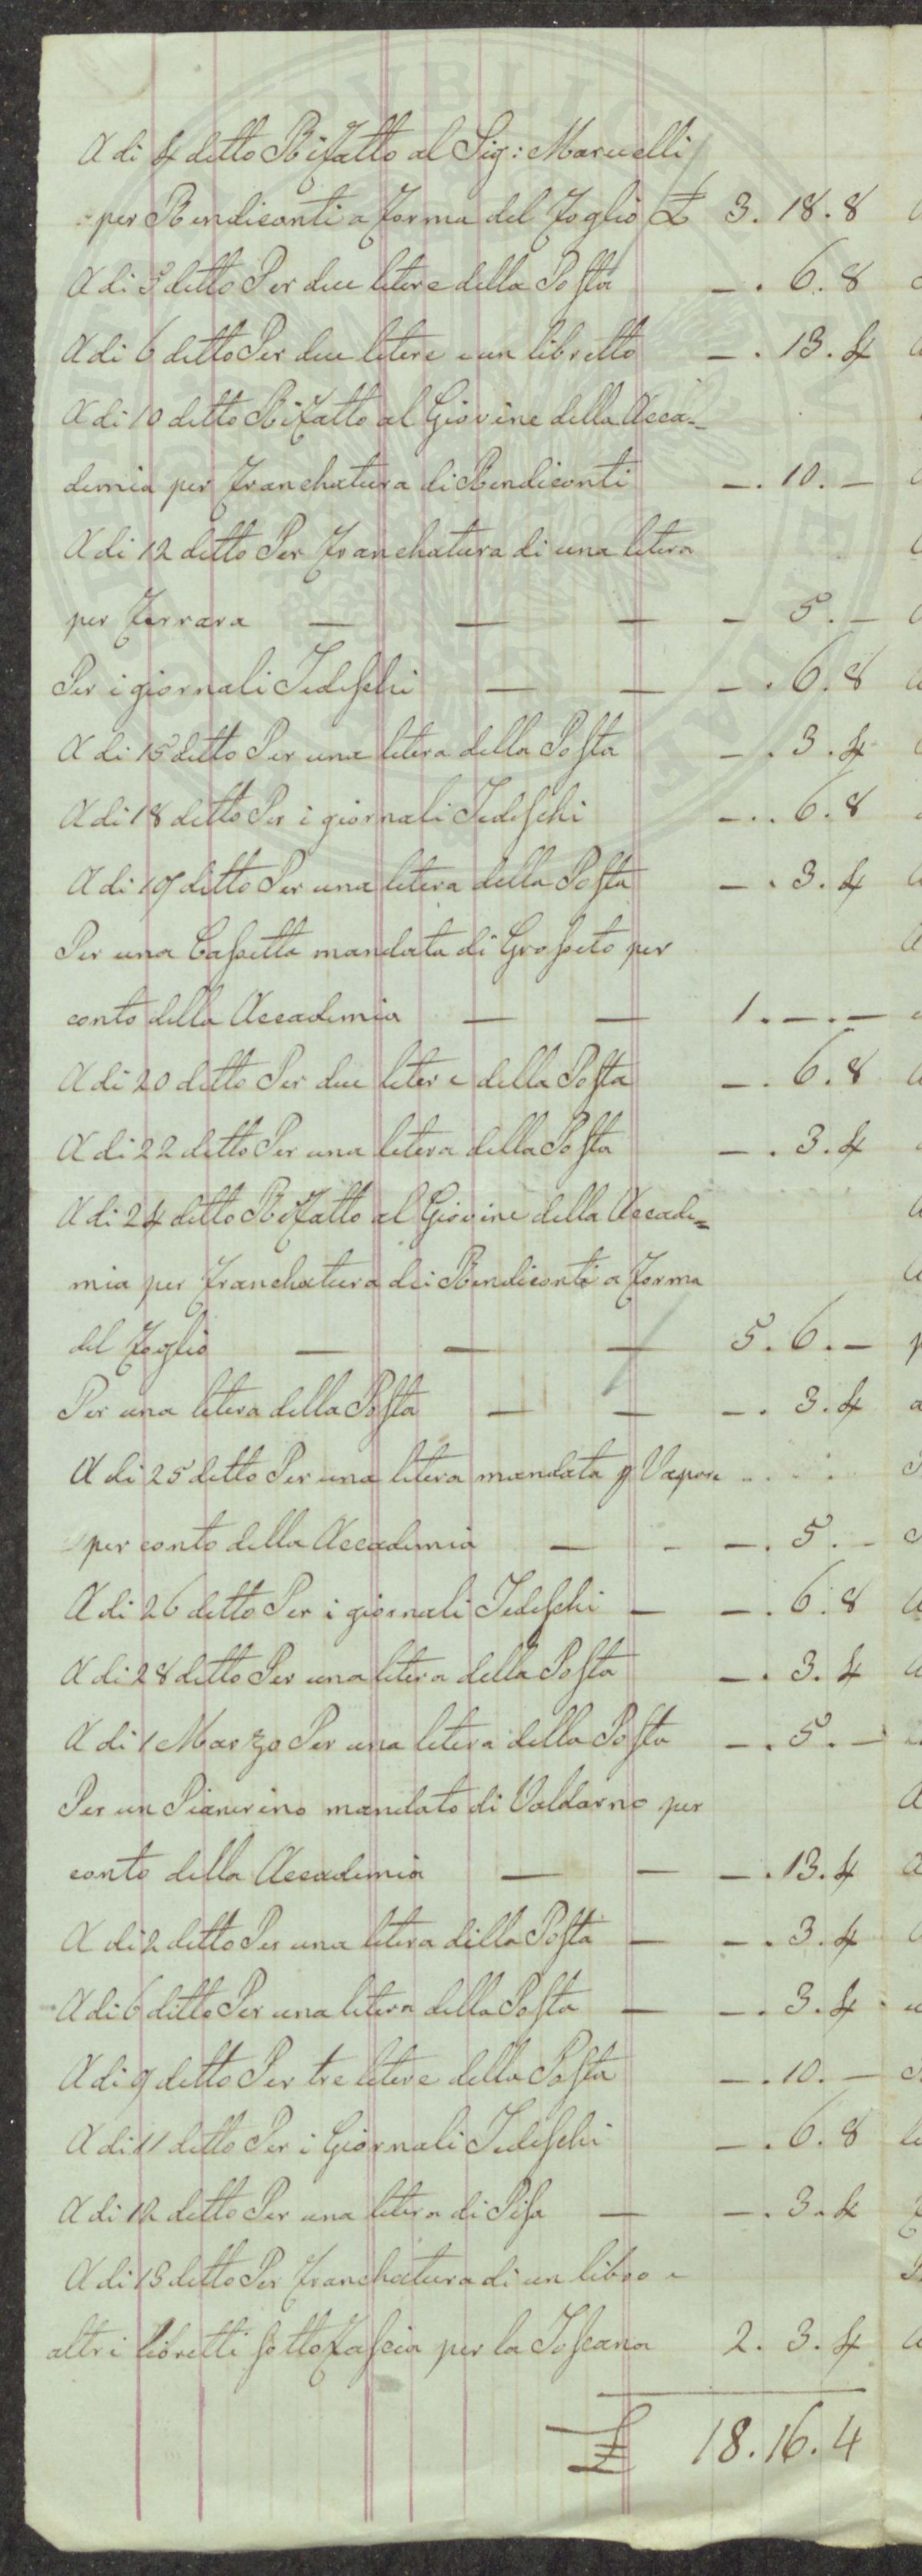 A di 4 detto Rifatto al Sig: Marucelli
per Rendiconti a forma del foglio £ 3. 18. 8
A di 5 detto Per due letere della Posta —. 6. 8
A di 6 detto Per due letere e un libretto —. 13. 4
A di 10 detto Rifatto al Giovine della Acca-
demia per franchatura di Rendiconti —. 10. —
A di 12 detto Per franchatura di una letera
per Ferrara — — — — 5. —
Per i giornali Tedeschi — — —. 6. 8
A di 15 detto Per una letera della Posta —. 3. 4
A di 18 detto Per i giornali Tedeschi —. 6. 8
A di 19 detto Per una letera della Posta —. 3. 4
Per una Cassetta mandata di Grosseto per
conto della Accademia — — 1. —. —
A di 20 detto Per due letere della Posta —. 6. 8
A di 22 detto Per una letera della Posta —. 3. 4
A di 24 detto Rifatto al Giovine della Accade=
mia per franchatura dei Rendiconti a forma
del foglio — — — 5. 6. —
Per una letera della Posta — — —. 3. 4
A di 25 detto Per una letera mandata p Vapore
per conto della Accademia — - —. 5. —
A di 26 detto Per i giornali Tedeschi — —. 6. 8
A di 28 detto Per una letera della Posta —. 3. 4
A di 1 Marzo Per una letera della Posta —. 5. —
Per un Pianerino mandato di Valdarno per
conto della Accademia — — —. 13. 4
A di 2 detto Per una letera della Posta — —. 3. 4
A di 6 detto Per una letera della Posta — —. 3. 4
A di 9 detto Per tre letere della Posta —. 10. —
A di 11 detto Per i Giornali Tedeschi —. 6. 8
A di 12 detto Per una letera di Pisa — —. 3. 4
A di 13 detto Per franchatura di un libro e
altri libretti sotto fascia per la Toscana 2. 3. 4
£ 18. 16. 4